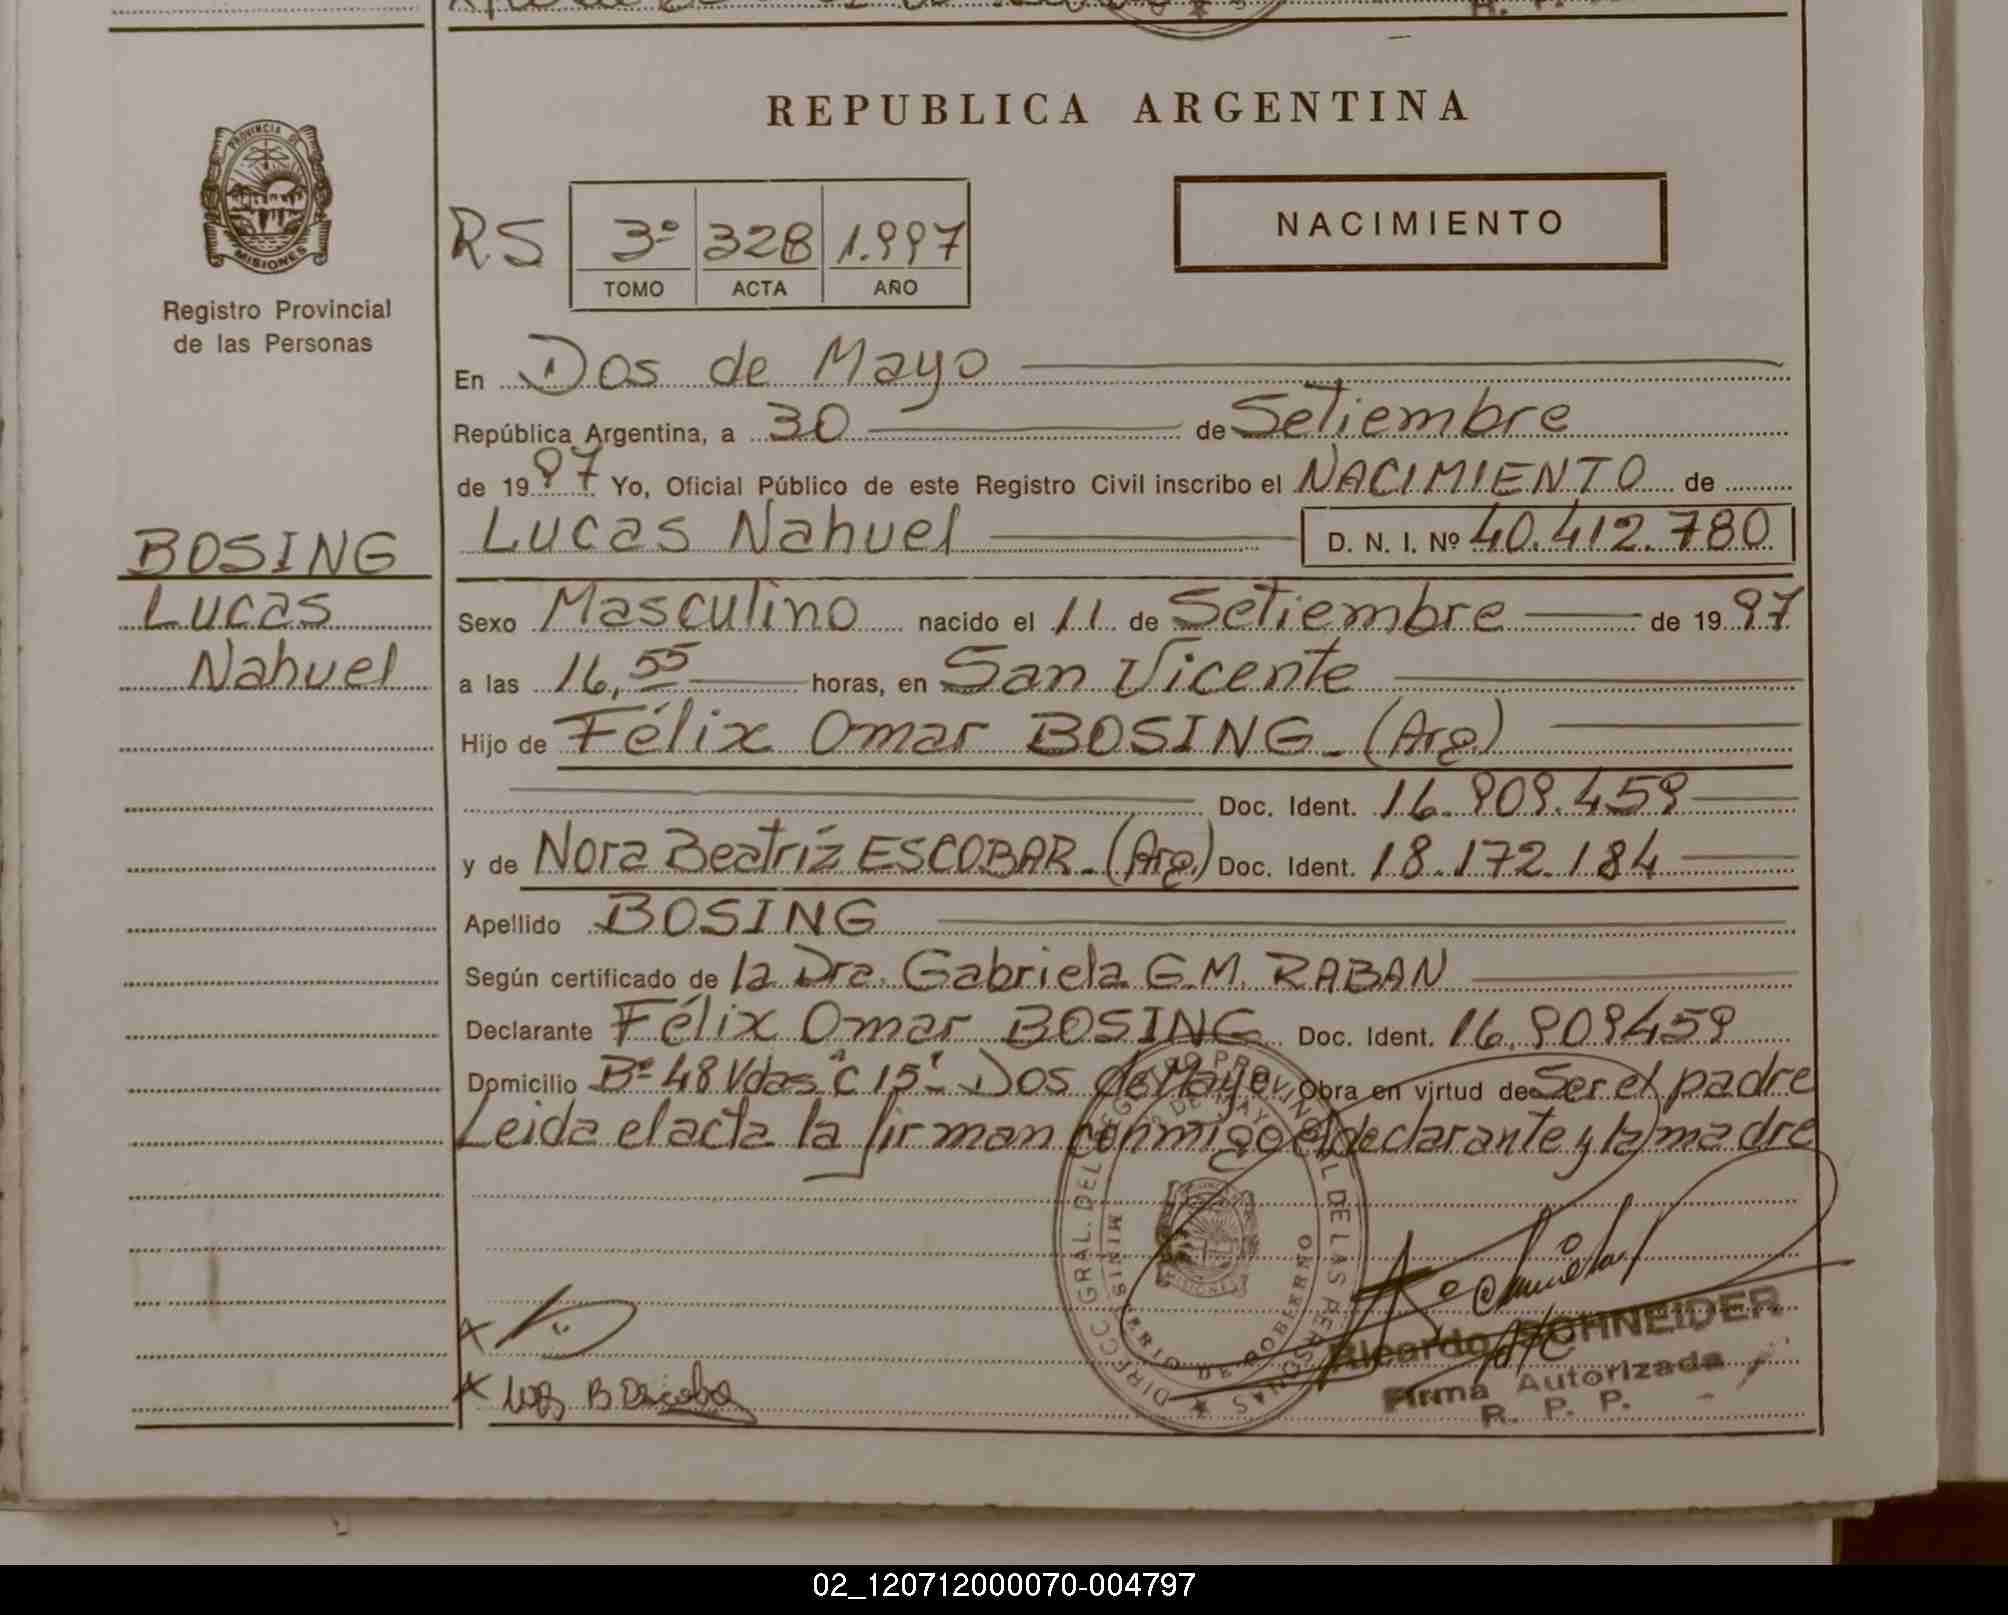 REPUBLICA ARGENTINA
PROVINCIA DE
MISIONES
Registro Provincial
de las Personas
RS 3º 328 1.997
TOMO ACTA AÑO
NACIMIENTO
En Dos de Mayo
República Argentina, a 30 de Setiembre
de 1997 Yo, Oficial Público de este Registro Civil inscribo el NACIMIENTO de
Lucas Nahuel D. N. I. Nº 40.412.780
BOSING
Lucas
Nahuel
Sexo Masculino nacido el 11 de Setiembre de 1997
a las 16,55 horas, en San Vicente
Hijo de Félix Omar BOSING - (Arg)
Doc. Ident. 16.909.459
y de Nora Beatríz ESCOBAR - (Arg.) Doc. Ident. 18.172.184
Apellido BOSING
Según certificado de la Dra. Gabriela G.M. RABAN
Declarante Félix Omar BOSING Doc. Ident. 16.909459
Domicilio Bº 48 Vdas "C 15" Dos de Mayo Obra en virtud de Ser el padre
Leida el acta la firman conmigo el declarante y la madre
DIRECC. GRAL. DEL REGISTRO PROVINCIAL DE LAS PERSONAS
MINISTERIO DE GOBIERNO
2 DE MAYO
MISIONES
Ricardo SCHNEIDER
Firma Autorizada
R. P. P.
02_120712000070-004797